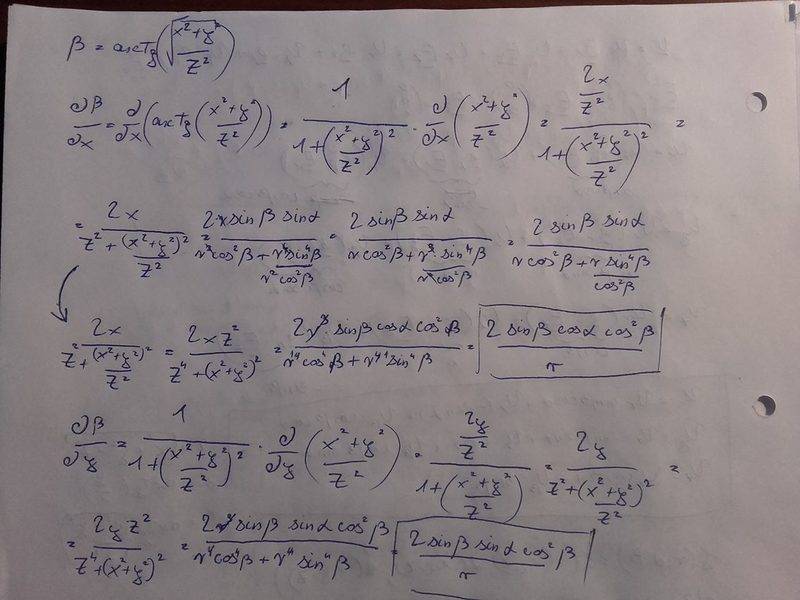 β = arctg(√((x²+y²)/z²))
∂β/∂x = ∂/∂x (arctg((x²+y²)/z²)) = 1/(1+((x²+y²)/z²)²) · ∂/∂x ((x²+y²)/z²) = (2x/z²)/(1+((x²+y²)/z²)²) =
= 2x/(z²+(x²+y²)²/z²) = 2r sinβ sinα/(r²cos²β + r⁴sin⁴β/(r²cos²β)) = 2 sinβ sinα/(r cos²β + r³ · sin⁴β/(r²cos²β)) = 2 sinβ sinα/(r cos²β + r sin⁴β/cos²β)
2x/(z²+(x²+y²)²/z²) = 2xz²/(z⁴+(x²+y²)²) = 2r³ · sinβ cosα cos²β/(r⁴cos⁴β + r⁴ sin⁴β) = 2 sinβ cosα cos²β/r
∂β/∂y = 1/(1+((x²+y²)/z²)²) · ∂/∂y ((x²+y²)/z²) = (2y/z²)/(1+((x²+y²)/z²)²) = 2y/(z²+(x²+y²)²/z²) =
= 2yz²/(z⁴+(x²+y²)²) = 2r³ sinβ sinα cos²β/(r⁴cos⁴β + r⁴ sin⁴β) = 2 sinβ sinα cos²β/r